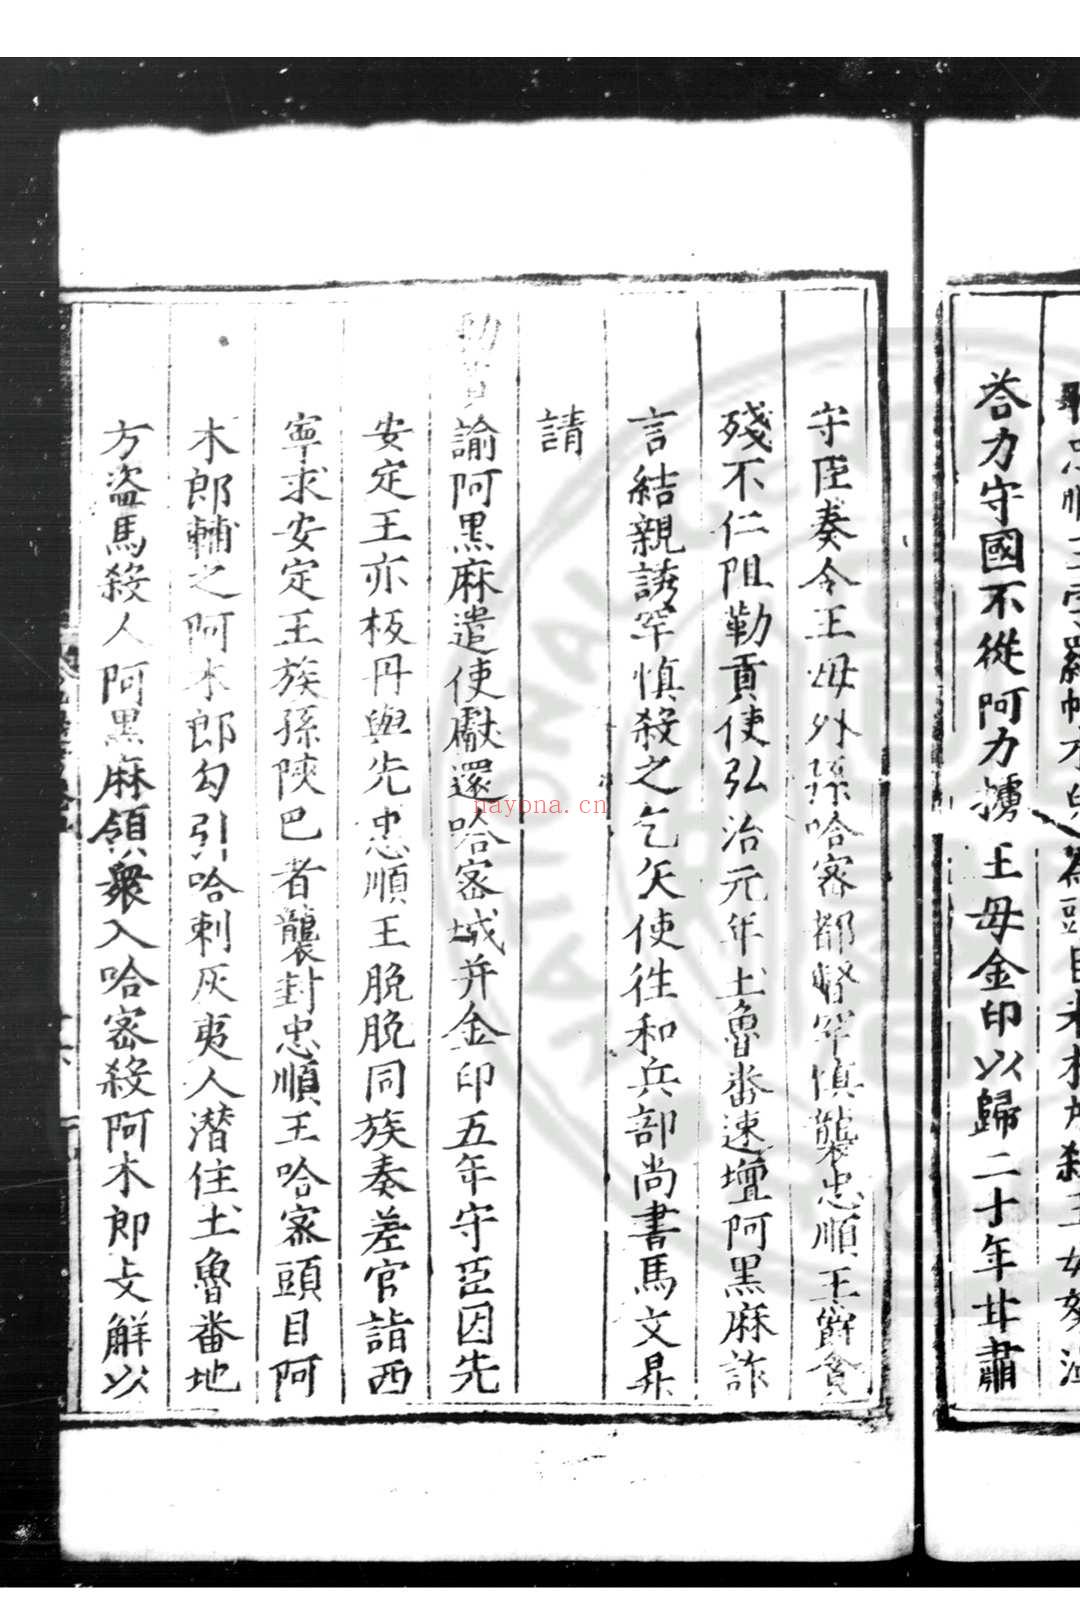 答力守國不從阿力擄王母金印以歸二十年甘肅
守臣奏令王母外孫哈密都督罕慎襲忠順王爵貪
殘不仁阻勒貢使弘治元年土魯番速壇阿黑麻詐
言結親誘罕慎殺之乞天使往和兵部尚書馬文昇
請
勑責諭阿黑麻遣使獻還哈密城并金印五年守臣因先
安定王亦板丹與先忠順王脫脫同族奏差官詣西
寧求安定王族孫陝巴者襲封忠順王哈密頭目阿
木郎輔之阿木郎勾引哈剌灰夷人潜住土魯番地
方盜馬殺人阿黑麻領衆入哈密殺阿木郎支解以
nayona.cn